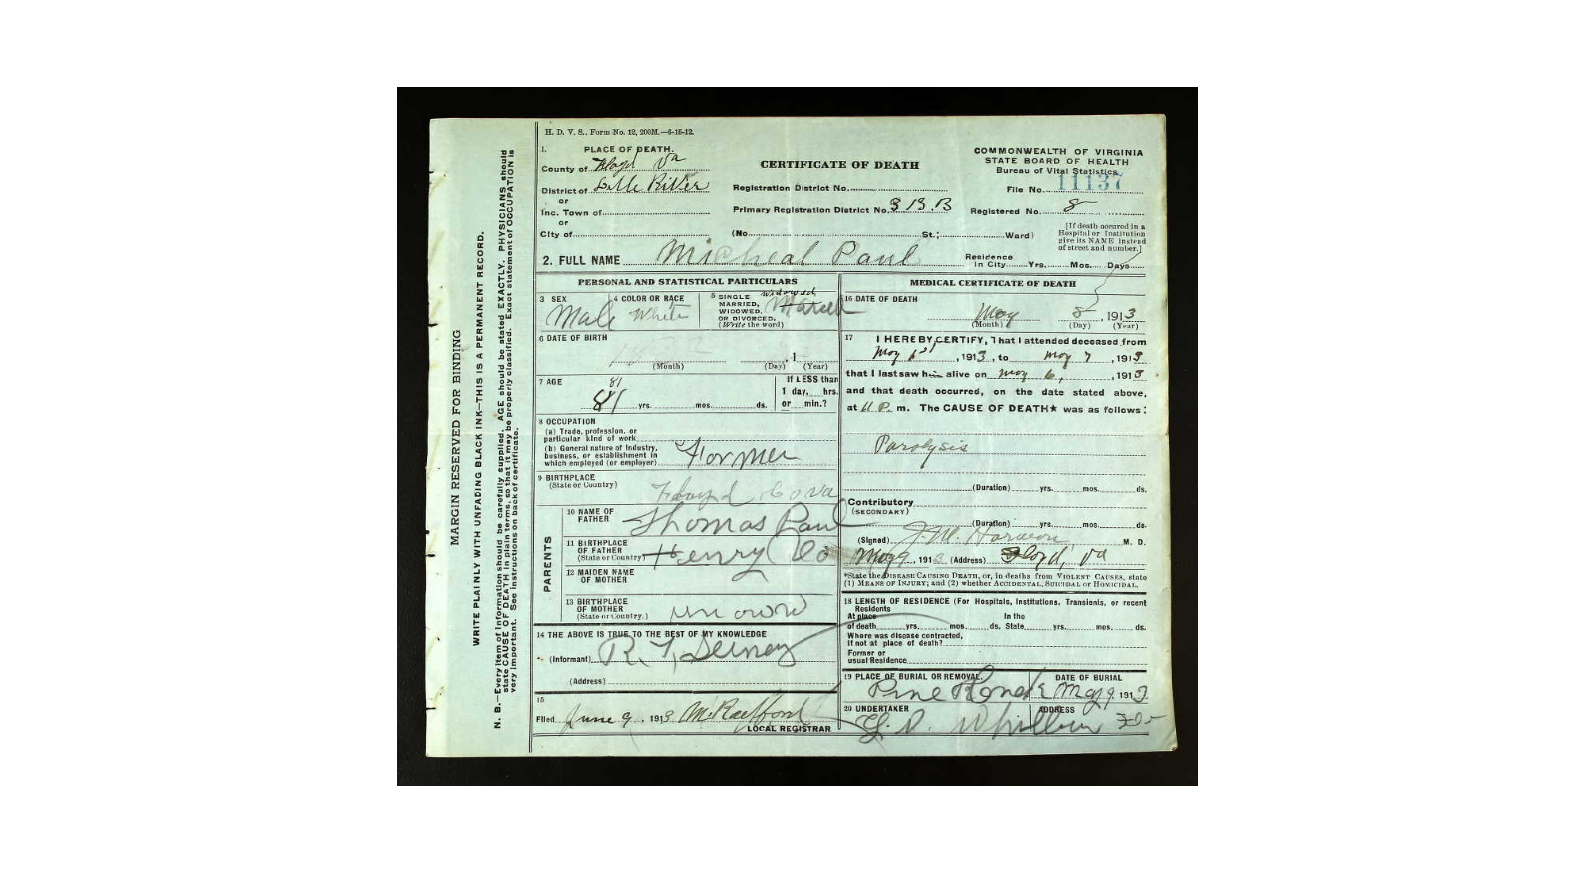 H. D. V. S.. Form No. 12, 200M.—6-15-12.
1. PLACE OF DEATH.
County of Floyd Va
District of Little River
or
Inc. Town of
or
City of
CERTIFICATE OF DEATH
Registration District No.
Primary Registration District No. 313.B
(No. St.; Ward)
COMMONWEALTH OF VIRGINIA
STATE BOARD OF HEALTH
Bureau of Vital Statistics
File No. 11137
Registered No. 8
[If death occured in a
Hospital or Institution
give its NAME instead
of street and number.]
2. FULL NAME Micheal Paul
Residence
In City Yrs. Mos. Days
PERSONAL AND STATISTICAL PARTICULARS
3 SEX
Male
4 COLOR OR RACE
White
5 SINGLE
MARRIED,
WIDOWED,
OR DIVORCED.
(Write the word)
widowed
6 DATE OF BIRTH
(Month) (Day) , 1 (Year)
7 AGE
81
81 yrs. mos. ds.
If LESS than
1 day, hrs.
or min.?
8 OCCUPATION
(a) Trade, profession, or
particular kind of work
(b) General nature of industry,
business, or establishment in
which employed (or employer)
Farmer
9 BIRTHPLACE
(State or Country)
Floyd Co va
PARENTS
10 NAME OF
FATHER
Thomas Paul
11 BIRTHPLACE
OF FATHER
(State or Country)
Henry Co
12 MAIDEN NAME
OF MOTHER
13 BIRTHPLACE
OF MOTHER
(State or Country.)
14 THE ABOVE IS TRUE TO THE BEST OF MY KNOWLEDGE
(Informant) R. T.
(Address)
15
Filed June 9, 1913
LOCAL REGISTRAR
MEDICAL CERTIFICATE OF DEATH
16 DATE OF DEATH
May 8, 1913
(Month) (Day) (Year)
17 I HEREBY CERTIFY, That I attended deceased from
May , 1913, to May 7, 1913
that I last saw him alive on May 6, , 1913
and that death occurred, on the date stated above,
at 11 P. m. The CAUSE OF DEATH★ was as follows:
Paralysis
(Duration) yrs. mos. ds.
Contributory
(SECONDARY)
(Duration) yrs. mos. ds.
(Signed) J. M. M. D.
May 9, 1913 (Address) Floyd, Va
*State the DISEASE CAUSING DEATH, or, in deaths from VIOLENT CAUSES, state
(1) MEANS OF INJURY; and (2) whether ACCIDENTAL, SUICIDAL or HOMICIDAL.
18 LENGTH OF RESIDENCE (For Hospitals, Institutions, Transients, or recent
Residents
At place In the
of death yrs. mos. ds. State yrs. mos. ds.
Where was disease contracted,
if not at place of death?
Former or
usual Residence
19 PLACE OF BURIAL OR REMOVAL
DATE OF BURIAL
May 9 1913
20 UNDERTAKER
ADDRESS
MARGIN RESERVED FOR BINDING
WRITE PLAINLY WITH UNFADING BLACK INK—THIS IS A PERMANENT RECORD.
N. B.—Every item of information should be carefully supplied. AGE should be stated EXACTLY. PHYSICIANS should
state CAUSE OF DEATH in plain terms, so that it may be properly classified. Exact statement of OCCUPATION is
very important. See instructions on back of certificate.